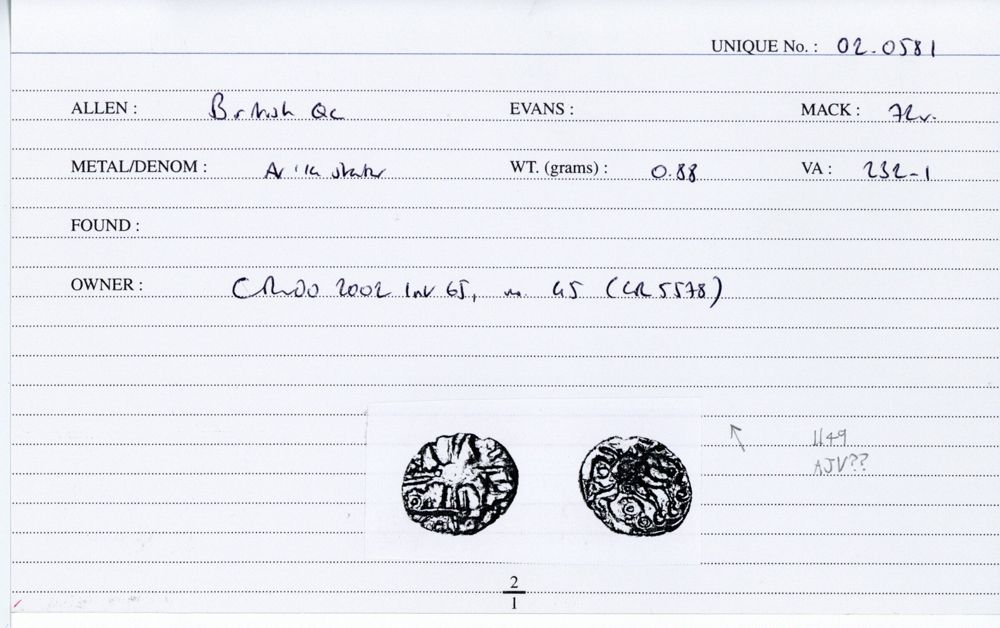 UNIQUE No. : 02.0581
ALLEN : British Qc EVANS : MACK : 72v.
METAL/DENOM : Ar 1/4 stater WT. (grams) : 0.88 VA : 232-1
FOUND :
OWNER : 2002 Inv 65, no. 45 (CR 5578)
1149
AJV??
2
1